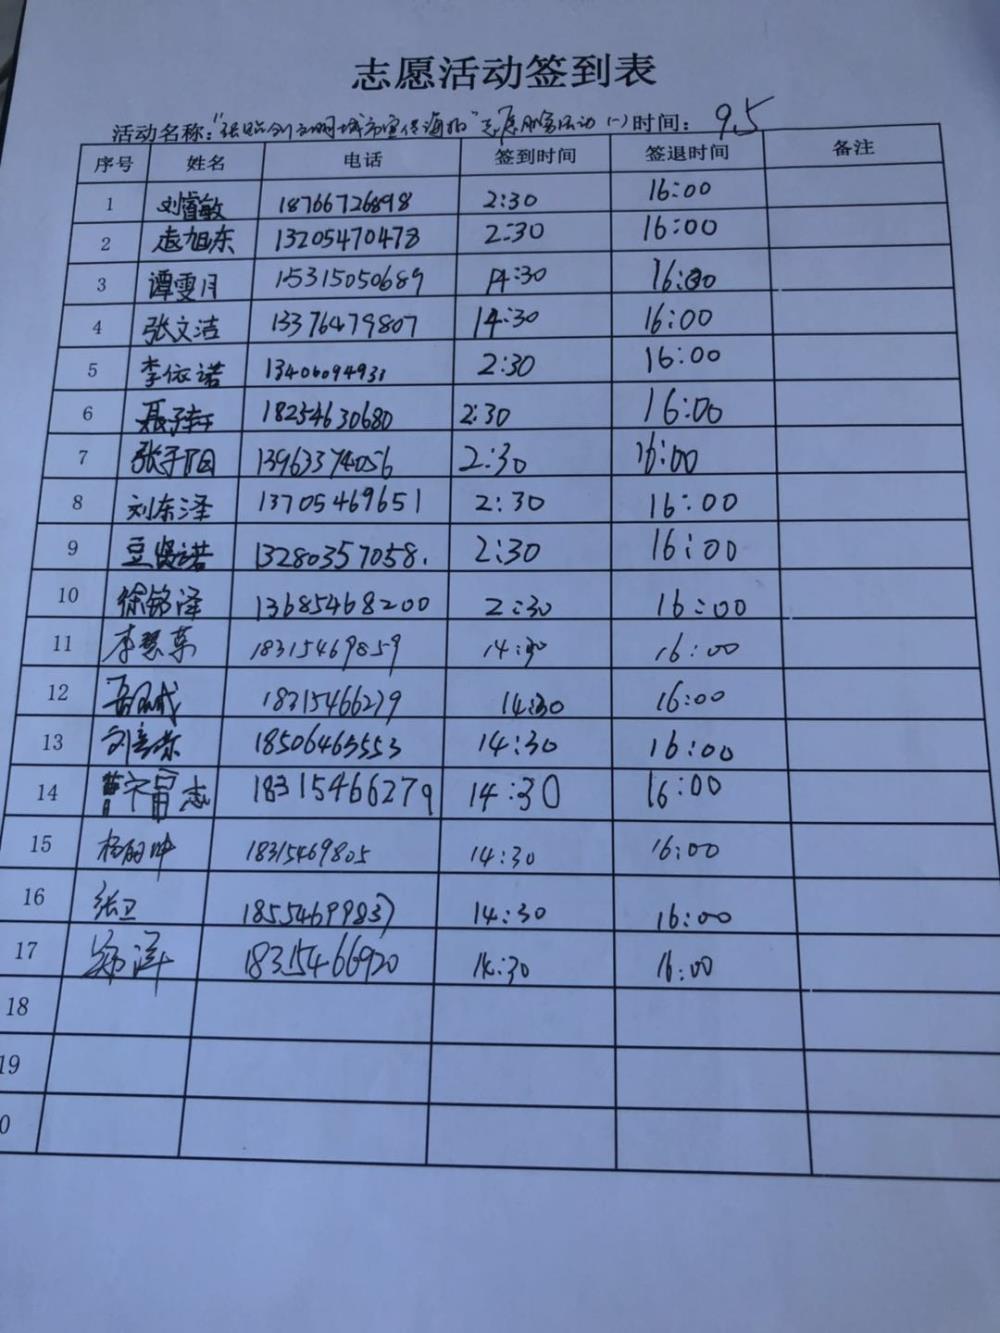 志愿活动签到表
活动名称:"张贴创文明城市宣传海报"志愿服务活动(一) 时间: 9.5
序号 姓名 电话 签到时间 签退时间 备注
1 刘睿敏 18766726898 2:30 16:00
2 袁旭东 13205470478 2:30 16:00
3 谭雯月 15315050689 14:30 16:00
4 张文洁 13376479807 14:30 16:00
5 李依诺 13406094931 2:30 16:00
6 聂子轩 18254630680 2:30 16:00
7 张子阳 13963374056 2:30 16:00
8 刘东泽 13705469651 2:30 16:00
9 豆贤诺 13280357058. 2:30 16:00
10 徐铭泽 13685468200 2:30 16:00
11 李慧英 18315469859 14:30 16:00
12 18315466279 14:30 16:00
13 18506465553 14:30 16:00
14 18315466279 14:30 16:00
15 18315469805 14:30 16:00
16 张卫 18554699837 14:30 16:00
17 郑洋 18315466920 14:30 16:00
18
19
0